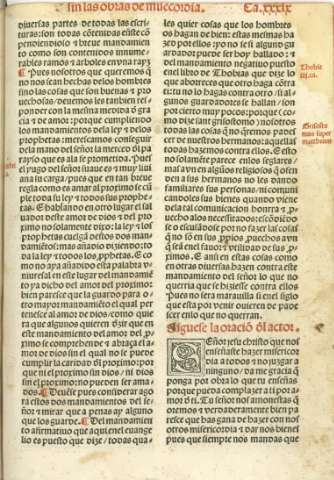 sin las obras de
Ca.xxxix
diuersas partes de todas las escri
turas: son todas
como son contenidos innume
rables ramos z arboles en vna rayz
Pues nosotros que queremos q̃
no nos sean hechas de los hombres
sino las cosas que son buenas z pro
uechosas: deuemos les tambien res
ponder con la mesma merced o gra
cia z de amor: porque cumpliendo
los mandamientos de la ley z de los
prophetas: merescamos conseguir
dela mano del señor la merced o la pa
raysо que es a la se prometida. Pues
el yugo del señor suaue es z muy liui
ana su carga, pues que en tan breue
regla como es amar al proximo se cũ
ple toda su ley z todos sus prophe
tas. E hablando en otro lugar el sal
uador deste amor de dios z del pro
ximo no solamente dixo: la ley z los
prophetas cuelgã destos dos man
damiẽtos: mas añadio diziendo: to
da la ley z todos los prophetas. E co
mo no aya añadido esta palabra v
niuersal en esse lugar del mandamiẽ
to ya dicho del amor del proximo:
bien paresce que la guardo para o
tro mayor mandamiẽto el qual per
tenesce al amor de dios: como quie
ra que algunos quieren dezir que en
este mandamiento del amor del pro
ximo se comprehende z abraça el a
mor de dios sin el qual no se puede
cumplir la caridad del proximo: por
que ni el proximo sin dios, ni dios
sin el proximo: no pueden ser ama
dos. Deuesse pues considerar ago
ra estos dos mandamientos del se
ñor z mirar que a penas ay alguno
que los guarde. Del mandamien
to afirmatiuo que aqui en el euange
lio es puesto que dize: todas qua
les quier cosas que los hombres
os hagan de bien: estas mesmas ha
zed por ellos: po no se si algun gu
ardador puede ser hoy hallado: z d
el mandamiento negatiuo puesto
en el libro de Thobias que dize lo
que aborreces que otro haga cõtra
ti: tu no lo hagas contra otro: si al
gunos guardadores se hallan, son
por cierto muy pocos: porque como
dize sant grisostomo: nosotros
todas las cosas q̃ no q̃remos pade
cer de nuestros hermanos: aquellas
todas hazemos contra ellos. E esto
no solamẽte parece en los seglares:
mas avn en algunos religiosos q̃ ofen
den a sus hermanos no les dando
familiares sus personas, ni comuni
candoles sus bienes quando viene
dela tal comunicacion honrra z p
uecho a los necessitados:
o escusãdose por no fazer las cosas
q̃ no sõ en sus ppios puechos avn
q̃ sea enel fauor z vtilidad de sus p
ximos. E ansi en estas cosas como
en otras diuersas hazen contra este
mandamiento del señor lo que no
querria que se hiziesse contra ellos.
Pues no sera marauilla si enel siglo
que esta por venir ouieren de pade
scer enlo que no querran.
Siguese la oracion del actor.
SEñor jesu christo que nos
enseñaste hazer misericor
dia a todos z no juzgar a
ninguno / da me gracia q̃
ponga por obra lo que tu enseñas
porque pueda complazer a ti por a
mor d̃ ti. Tu señor nos amonestas q̃
oremos z verdaderamente bien pa
resce que has gana de hazer con nos
otros misericordia z dar nos bienes
pues que siempre nos mandas que
Thobie
iiij.ca.
Grisosto
mus super
mattheum